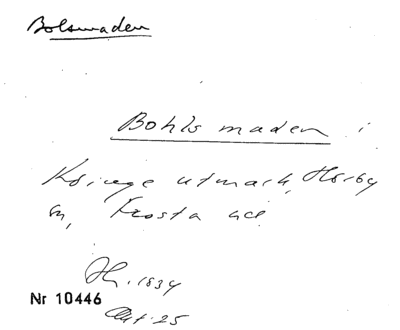 Bolsmaden
Bohls maden i
Ksinge utmark, Hörby
sn, Frosta hd
Hr. 1834
Nr 10446
Akt. 25